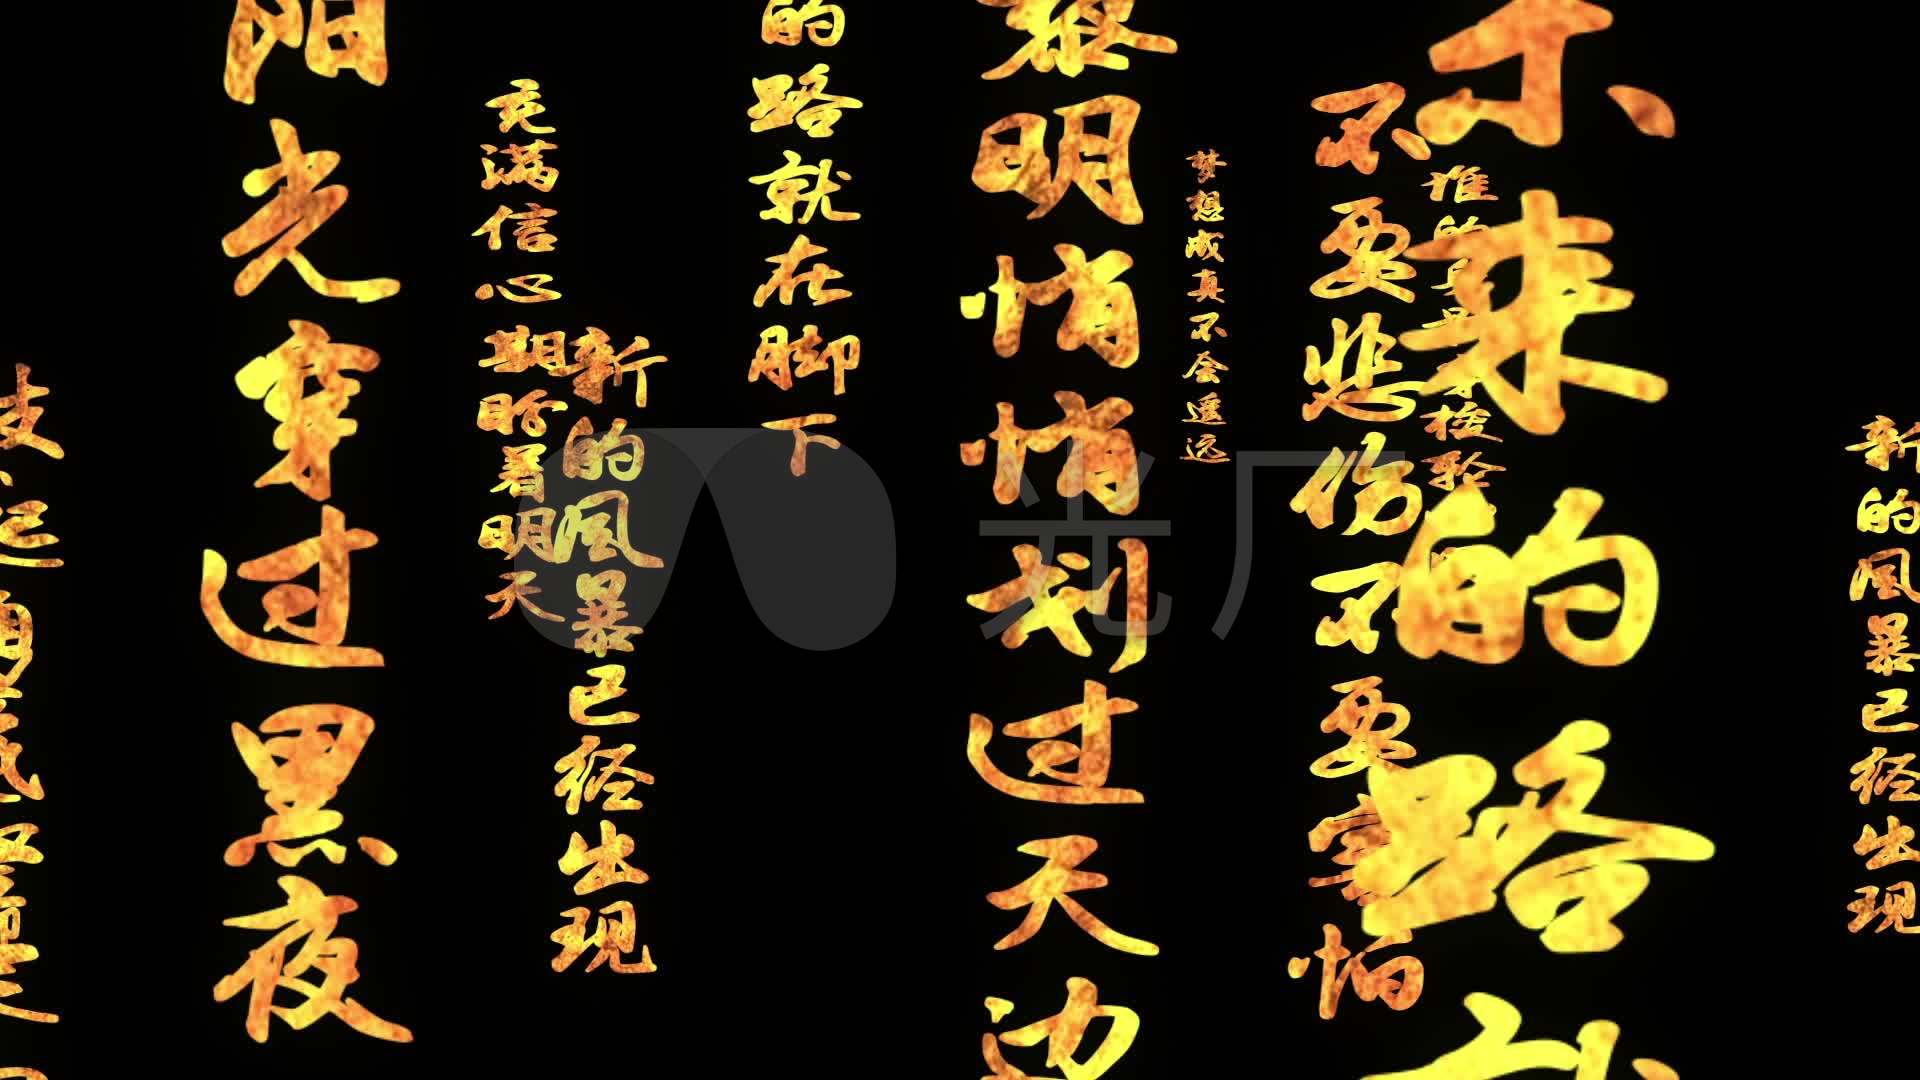 阳光穿过黑夜
充满信心期盼着明天
新的风暴已经出现
的路就在脚下
黎明悄悄划过天边
梦想成真不会遥远
不要悲伤不要害怕
谁的
检验
未来的路就
新的风暴已经出现
光厂